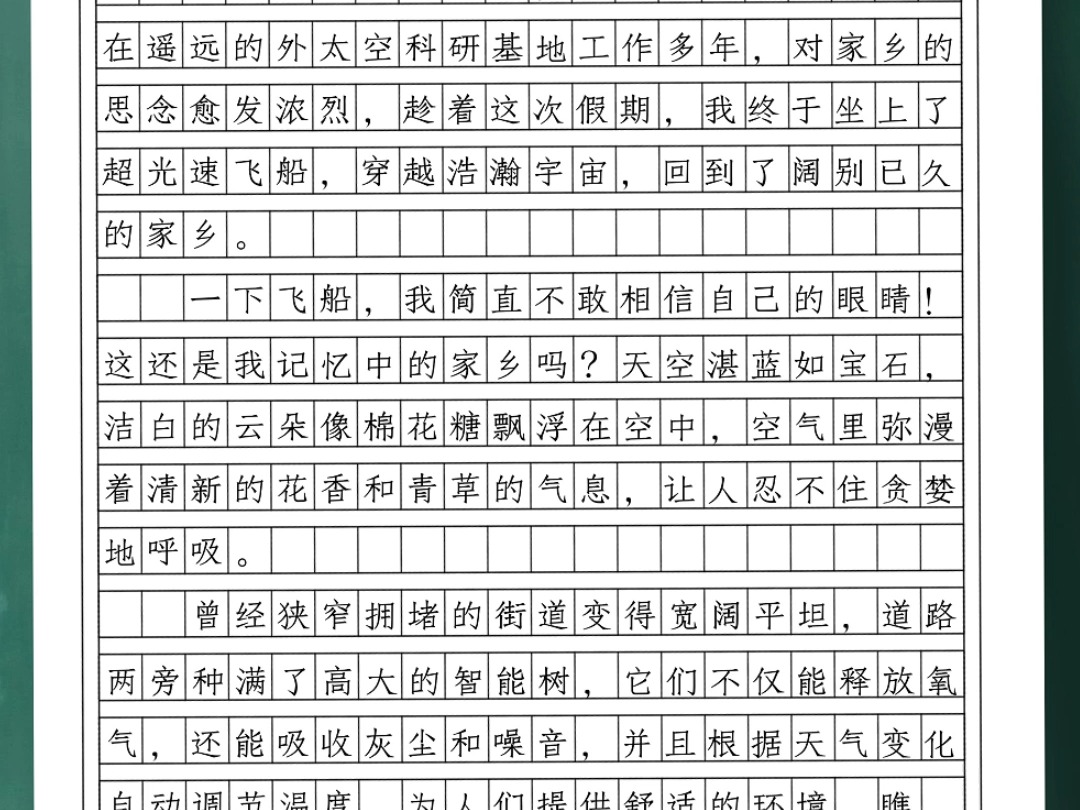 在遥远的外太空科研基地工作多年，对家乡的
思念愈发浓烈，趁着这次假期，我终于坐上了
超光速飞船，穿越浩瀚宇宙，回到了阔别已久
的家乡。
一下飞船，我简直不敢相信自己的眼睛！
这还是我记忆中的家乡吗？天空湛蓝如宝石，
洁白的云朵像棉花糖飘浮在空中，空气里弥漫
着清新的花香和青草的气息，让人忍不住贪婪
地呼吸。
曾经狭窄拥堵的街道变得宽阔平坦，道路
两旁种满了高大的智能树，它们不仅能释放氧
气，还能吸收灰尘和噪音，并且根据天气变化
自动调节温度，为人们提供舒适的环境。瞧，